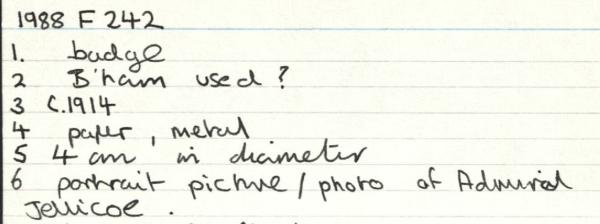 1988 F 242
1. badge
2 B'ham used ?
3 C.1914
4 paper, metal
5 4 cm in diameter
6 portrait picture / photo of Admiral
Jellicoe .